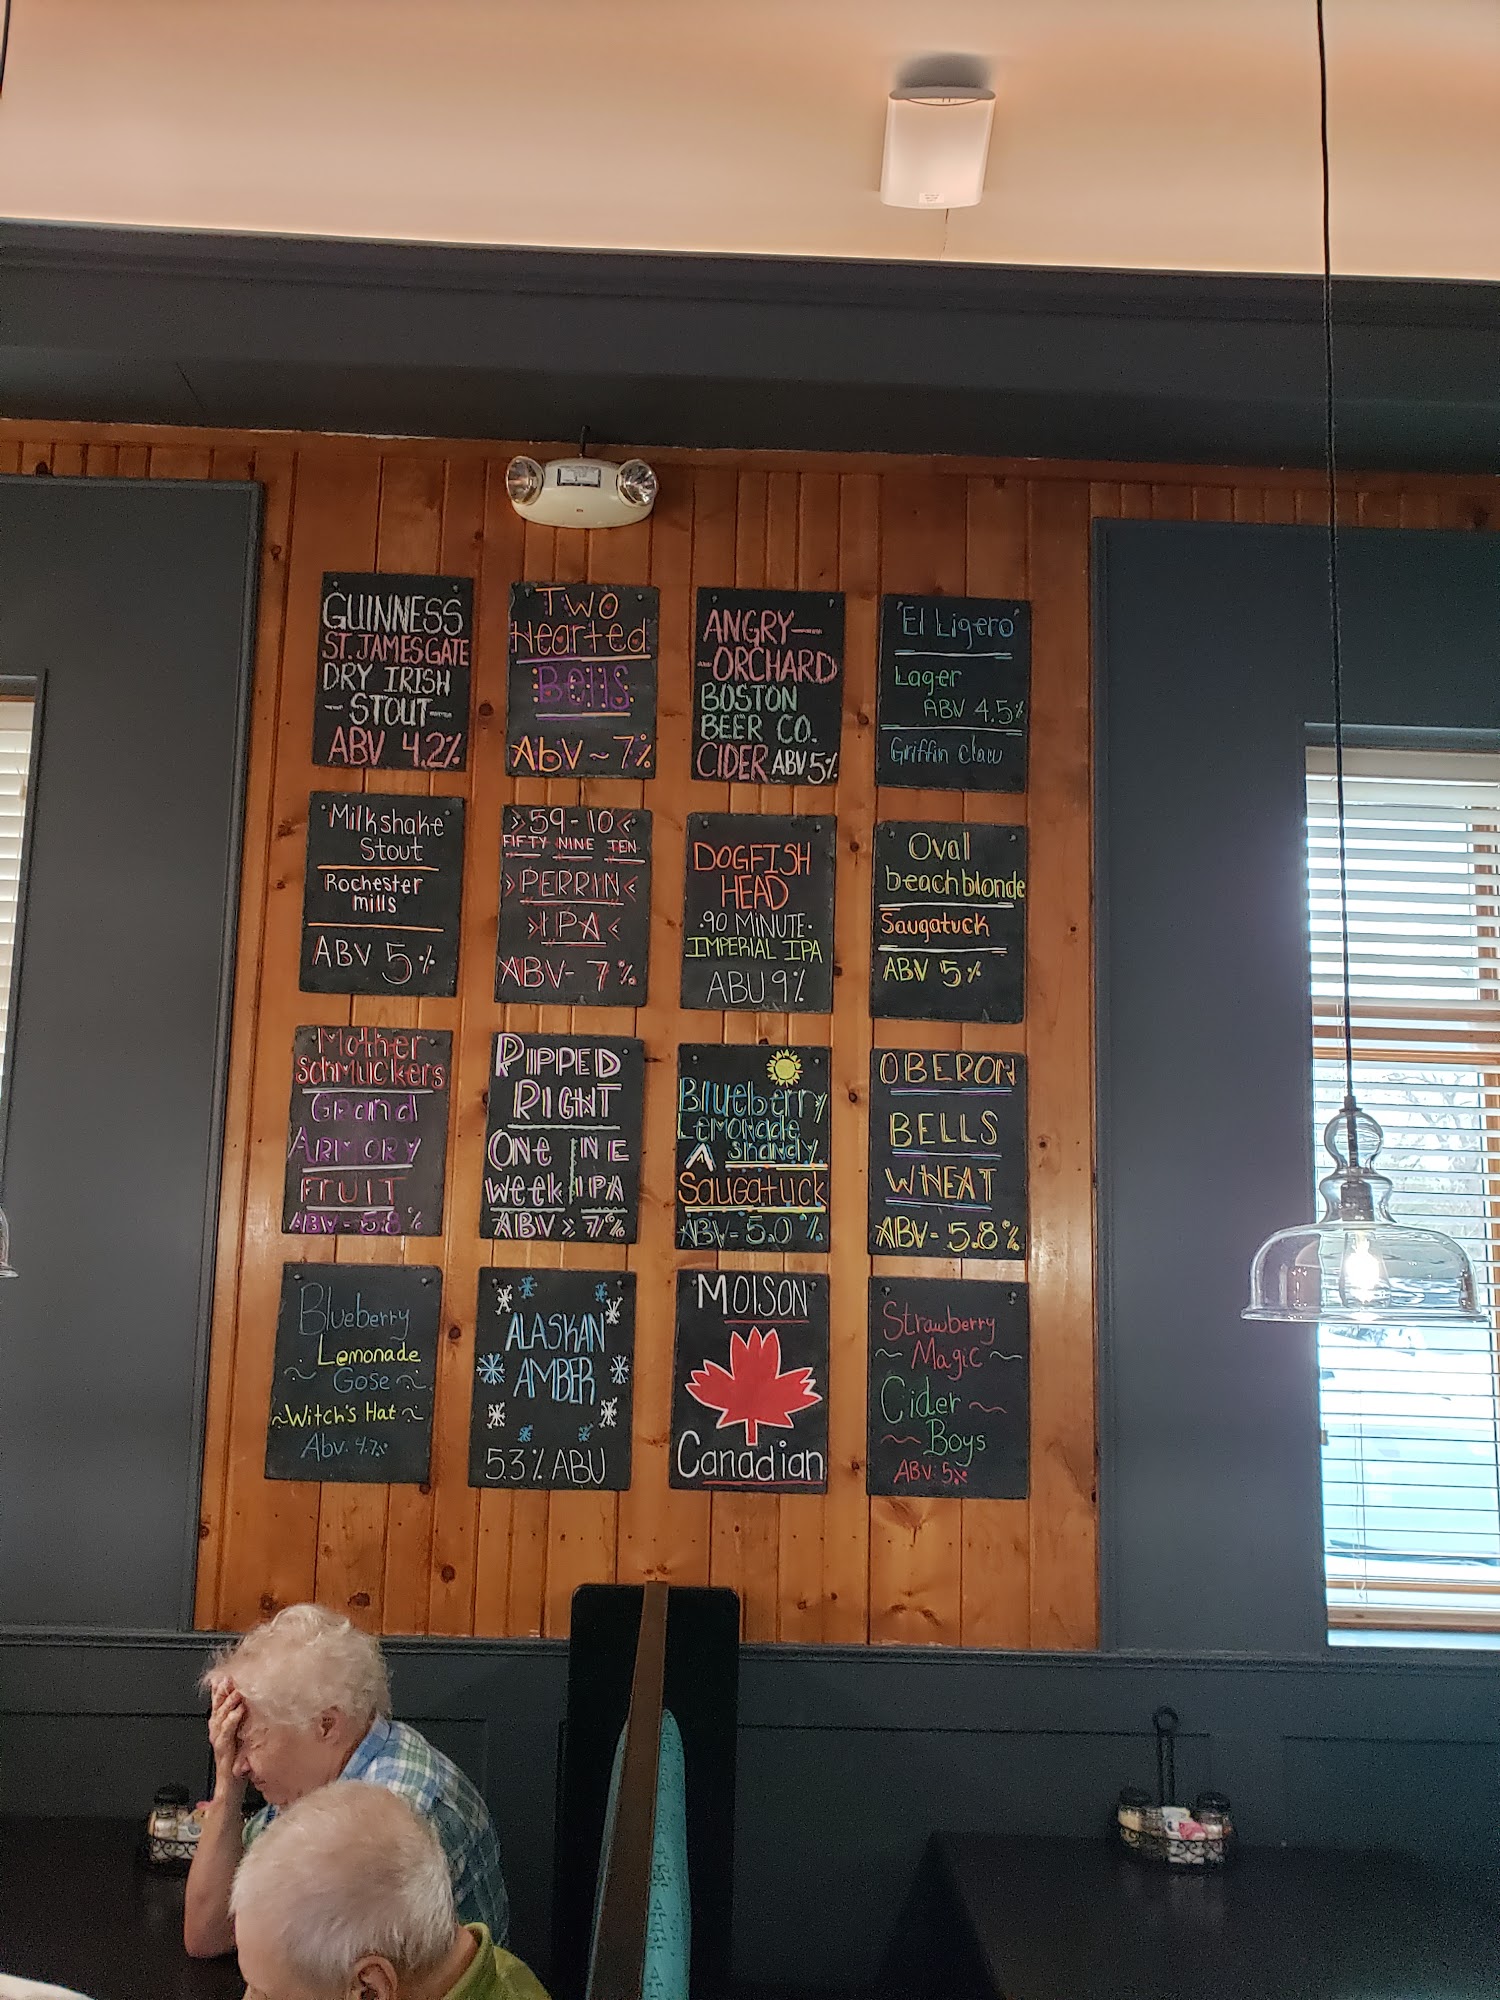 GUINNESS
ST. JAMES GATE
DRY IRISH
-STOUT-
ABV 4.2%
TWO
Hearted
Bells
AbV ~ 7%
ANGRY
ORCHARD
BOSTON
BEER CO.
CIDER ABV 5%
"El Ligero"
Lager
ABV 4.5%
Griffin claw
Milkshake
Stout
Rochester
mills
ABV 5%
>59-10<
FIFTY NINE TEN
>PERRIN<
>IPA<
ABV- 7%
DOGFISH
HEAD
·90 MINUTE·
IMPERIAL IPA
ABU 9%
Oval
beach blonde
Saugatuck
ABV 5%
Mother
SCHMUCKERS
Grand
ARMORY
FRUIT
ABV - 5.8%
RIPPED
RIGHT
One NE
week IPA
ABV > 7%
Blueberry
Lemonade
Shandy
Saugatuck
ABV- 5.0%
OBERON
BELLS
WHEAT
ABV- 5.8%
Blueberry
Lemonade
Gose
~Witch's Hat~
Abv. 4.7%
ALASKAN
AMBER
5.3% ABU
MOLSON
Canadian
Strawberry
~Magic~
Cider~
~Boys
ABV: 5%